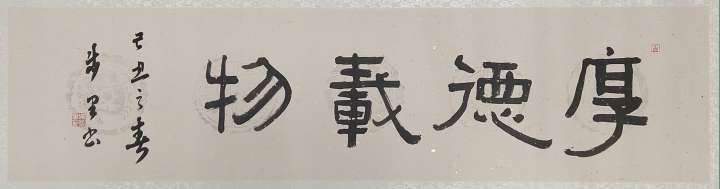 厚德載物
己丑之春